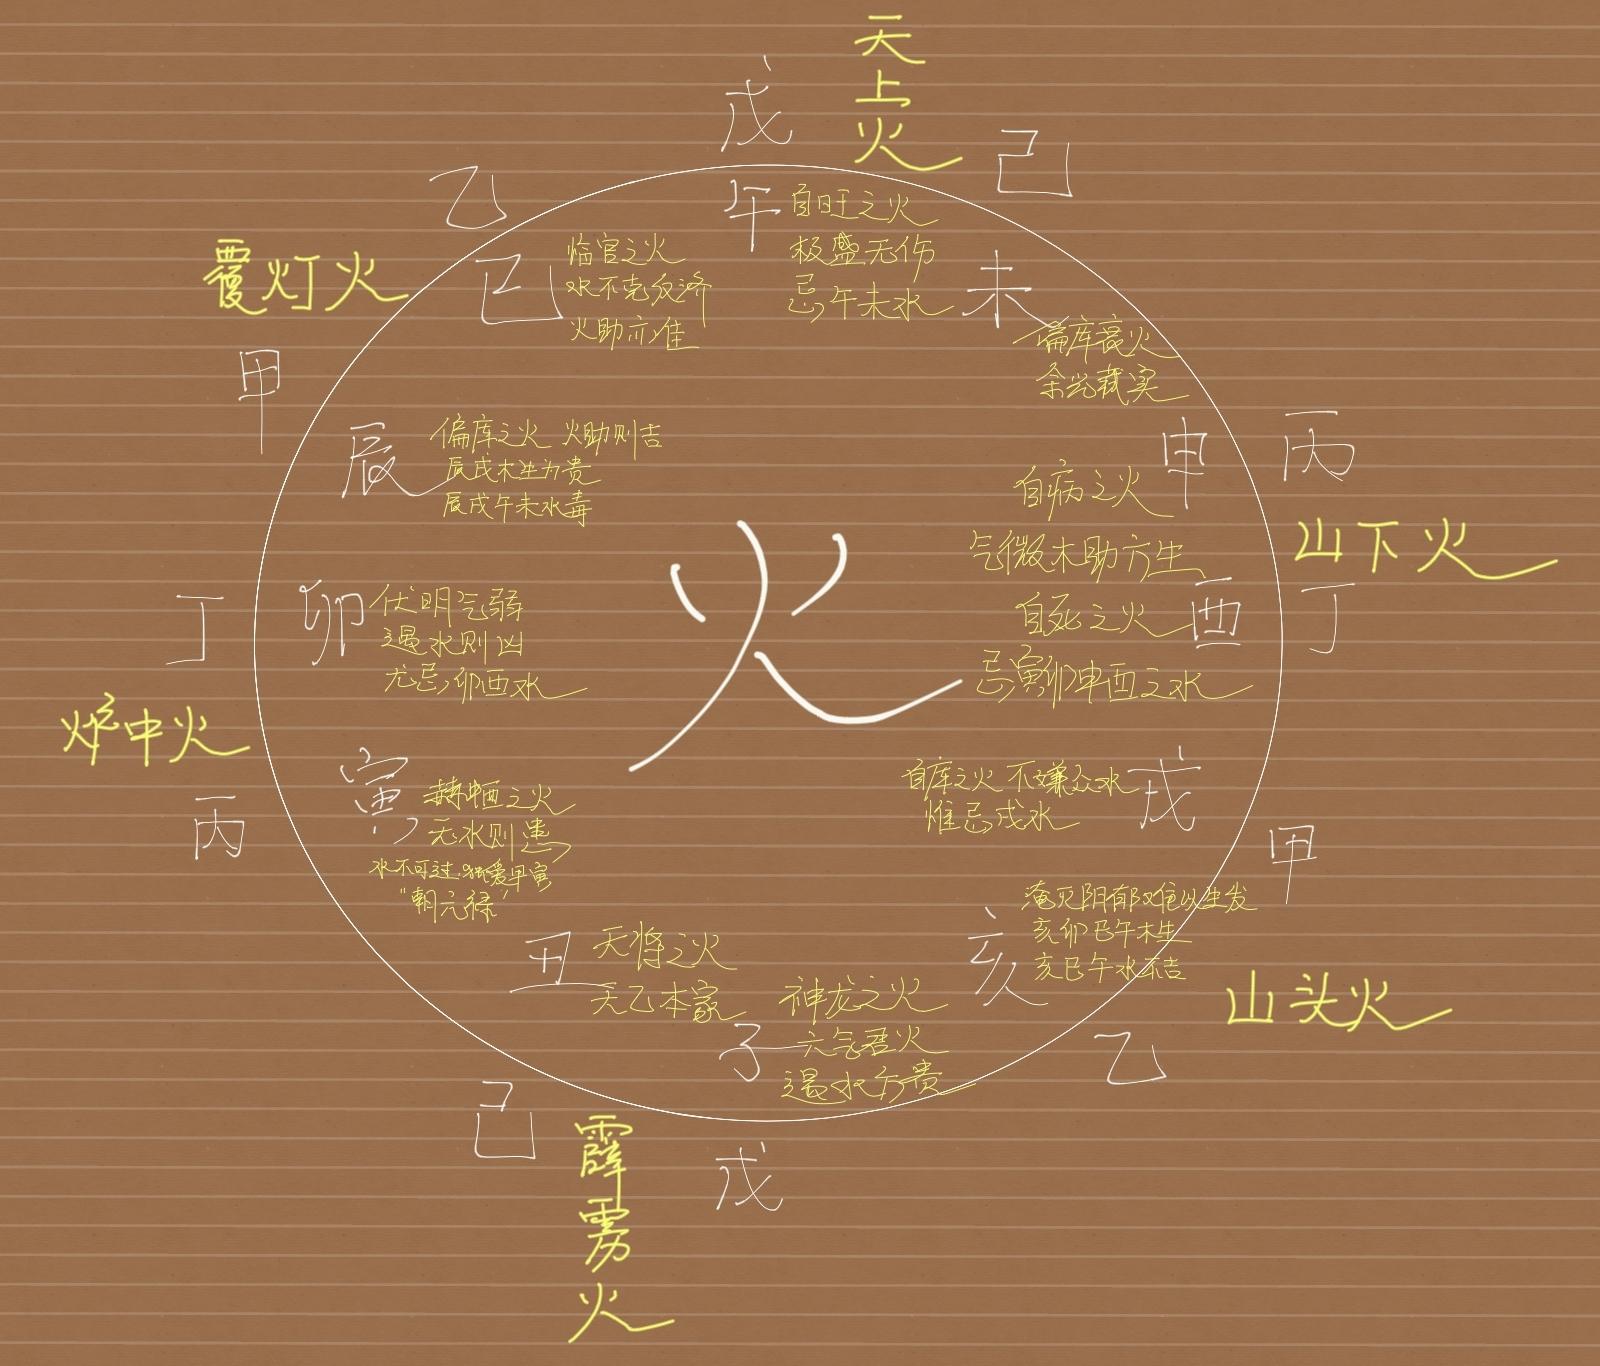 天
上
火
戊
己
乙
午
自旺之火
极盛无伤
忌午未水
巳
临官之火
水不克反济
火助亦难
未
偏库衰火
余光藏实
覆灯火
甲
辰
偏库之火 火助则吉
辰戌木生为贵
辰戌午未水毒
申
丙
自病之火
气微木助方生
山下火
丁
卯
伏明气弱
遇水则凶
尤忌卯酉水
火
自死之火
酉
丁
忌寅卯申酉之水
炉中火
丙
寅
赫曦之火
无水则患
水不可过,独爱甲寅
"朝元禄"
自库之火 不嫌众水
惟忌戌水
戌
甲
丑
天将之火
天乙本家
子
神龙之火
六气君火
遇水方贵
亥
淹灭阴郁难以生发
亥卯巳午木生
亥巳午水不吉
山头火
乙
己
霹
雳
火
戊